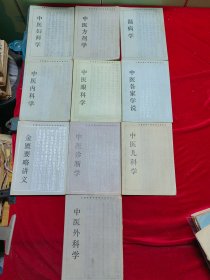 中医妇科学
中医方剂学
温病学
中医内科学
中医眼科学
中医各家学说
金匮要略讲义
中医诊断学
中医儿科学
中医外科学